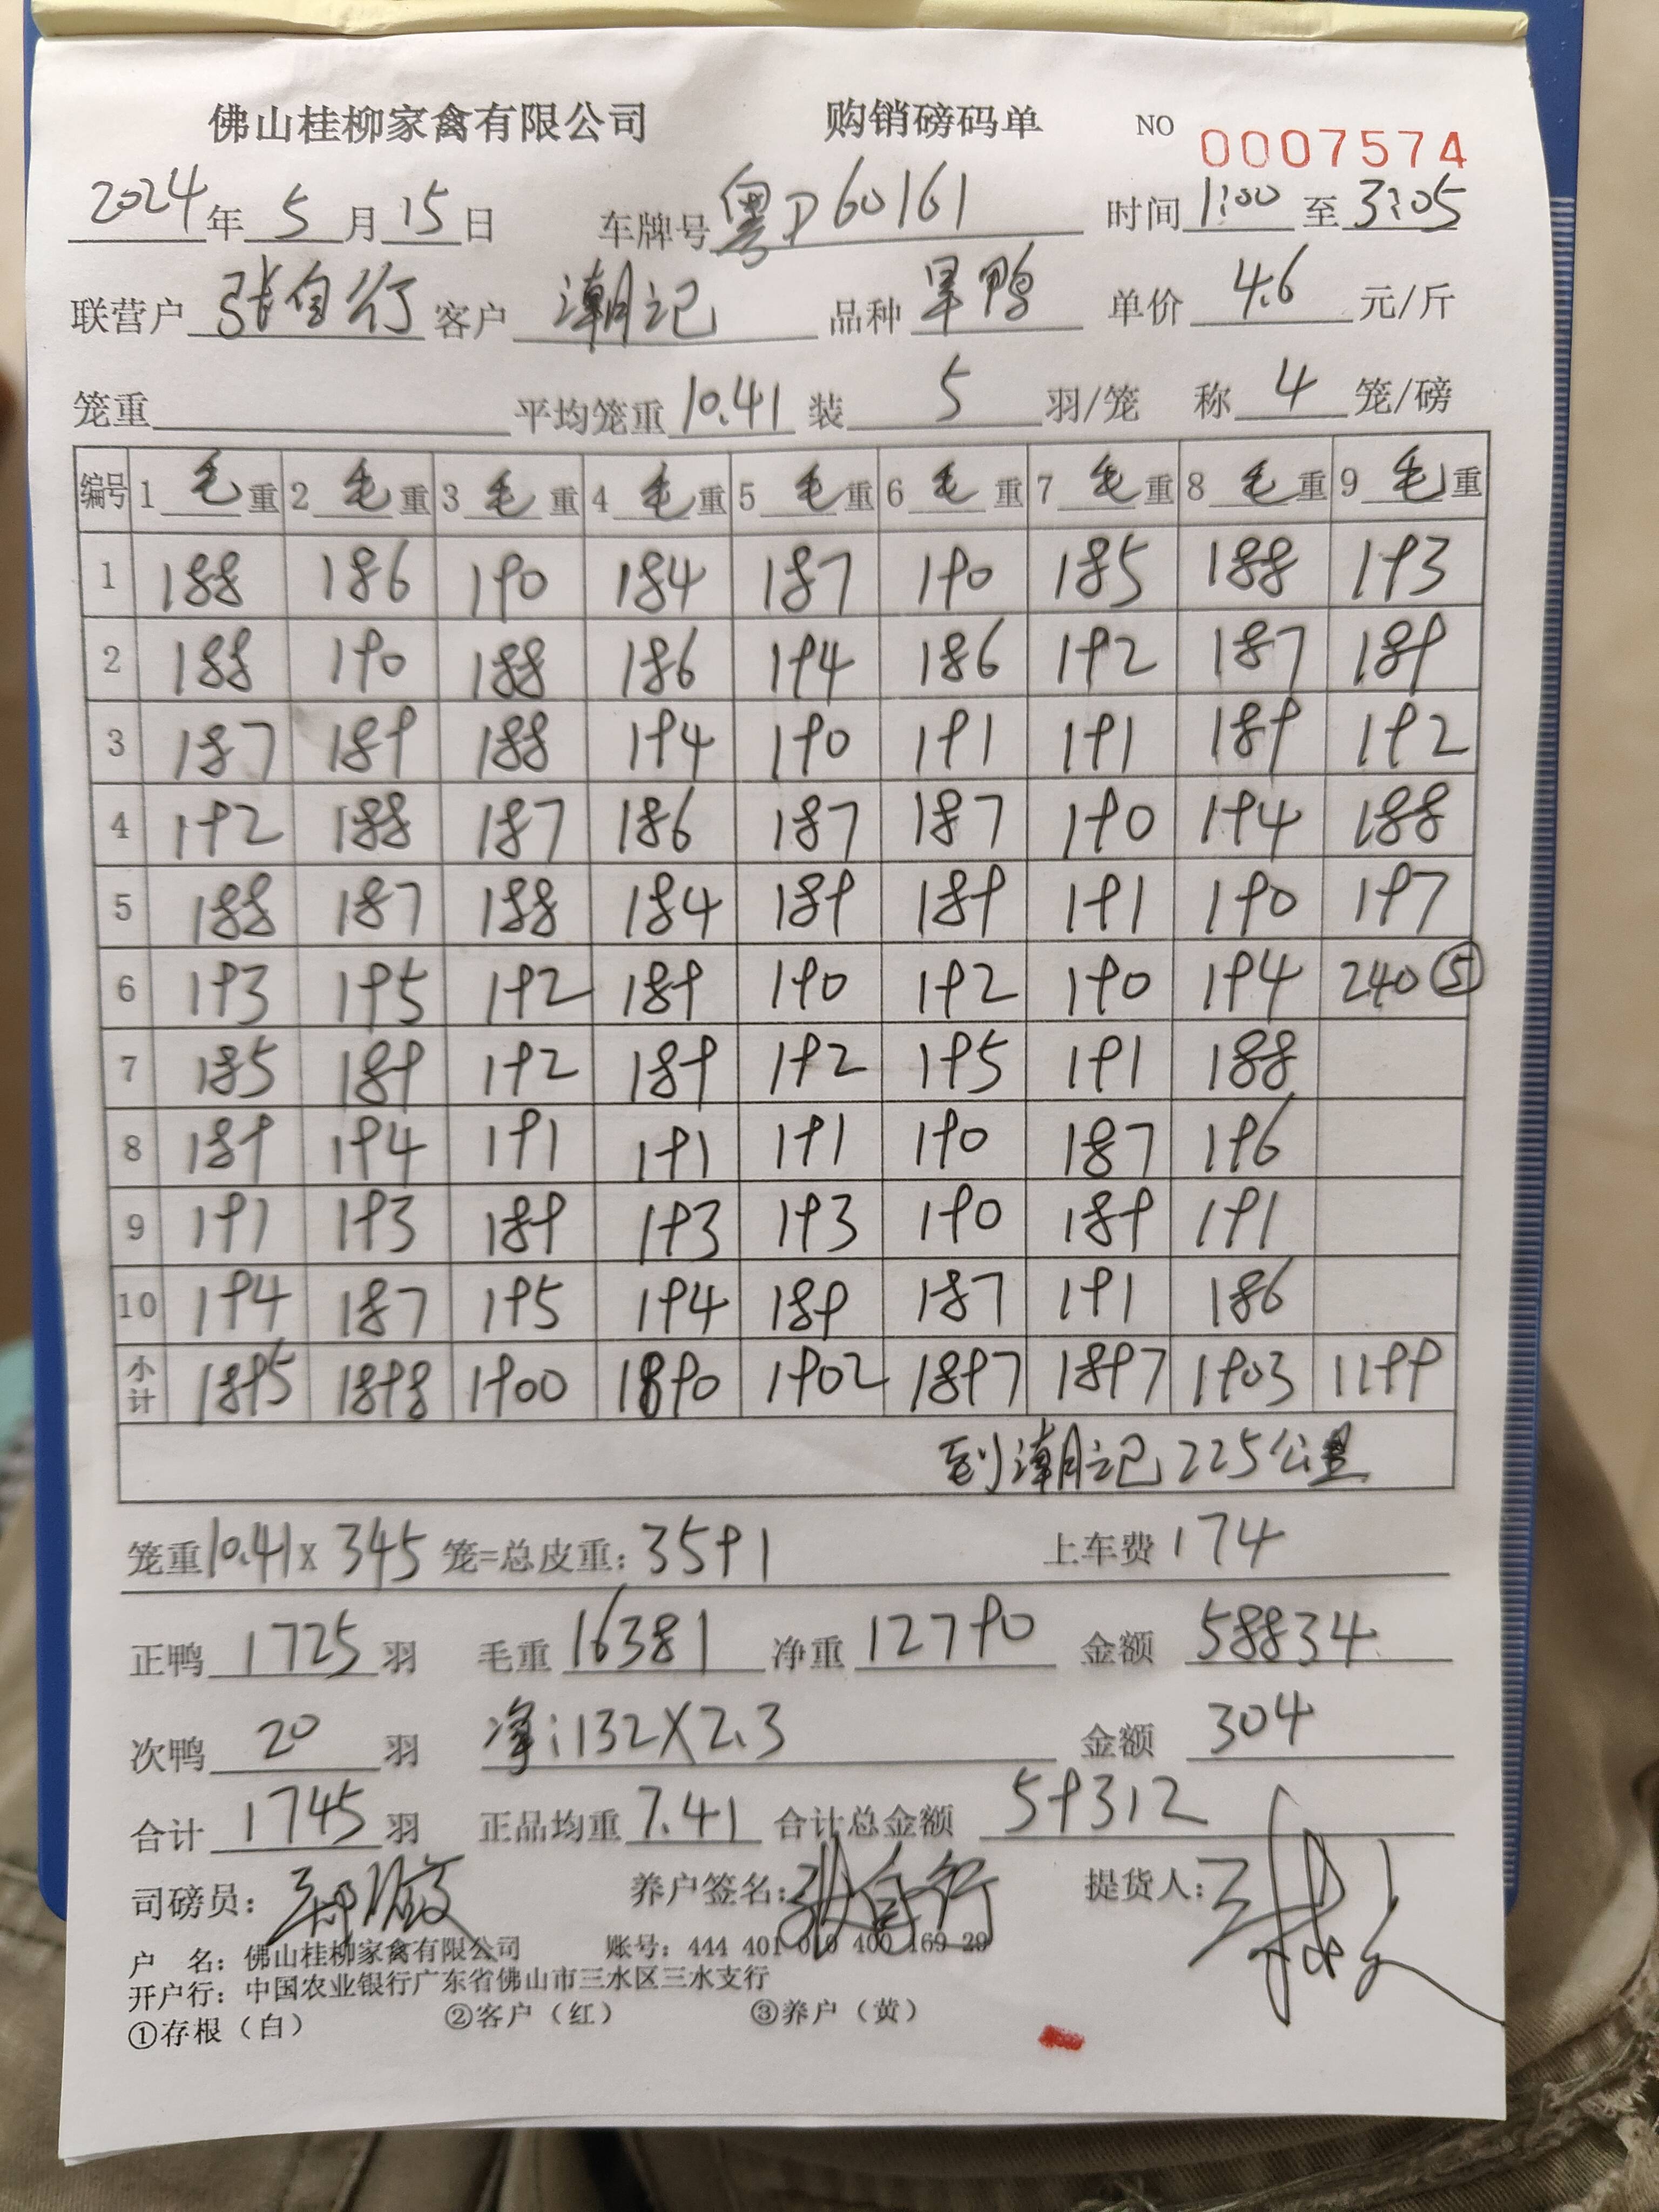 佛山桂柳家禽有限公司 购销磅码单 NO 0007574
2024年 5 月 15 日 车牌号 粤P60161 时间 1:00 至 3:05
联营户 张自行 客户 潮记 品种 旱鸭 单价 4.6 元/斤
笼重 平均笼重 10.41 装 5 羽/笼 称 4 笼/磅
编号 1 毛重 2 毛重 3 毛重 4 毛重 5 毛重 6 毛重 7 毛重 8 毛重 9 毛重
1 188 186 190 184 187 190 185 188 193
2 188 190 188 186 194 186 192 187 189
3 187 189 188 194 190 191 191 189 192
4 192 188 187 186 187 187 190 194 188
5 188 187 188 184 189 189 191 190 197
6 193 195 192 189 190 192 190 194 240 ⑤
7 185 189 192 189 192 195 191 188
8 189 194 191 191 191 190 187 196
9 191 193 189 193 193 190 189 191
10 194 187 195 194 189 187 191 186
小计 1895 1898 1900 1890 1902 1897 1897 1903 1199
到潮记225公里
笼重 10.41 x 345 笼=总皮重: 3591 上车费 174
正鸭 1725 羽 毛重 16381 净重 12790 金额 58834
次鸭 20 羽 净:132X2.3 金额 304
合计 1745 羽 正品均重 7.41 合计总金额 59312
司磅员: 养户签名: 张自行 提货人:
户 名: 佛山桂柳家禽有限公司 账号: 444 401 010 400 169 29
开户行: 中国农业银行广东省佛山市三水区三水支行
①存根（白） ②客户（红） ③养户（黄）